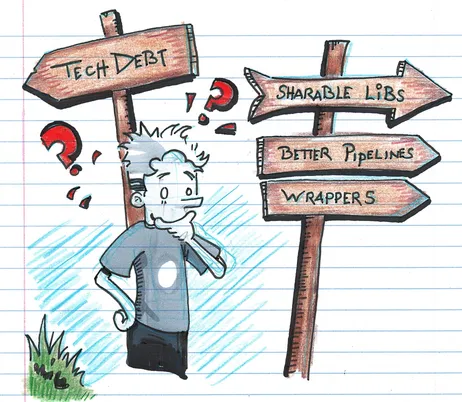 TECH DEBT
SHARABLE LIBS
BETTER PIPELINES
WRAPPERS